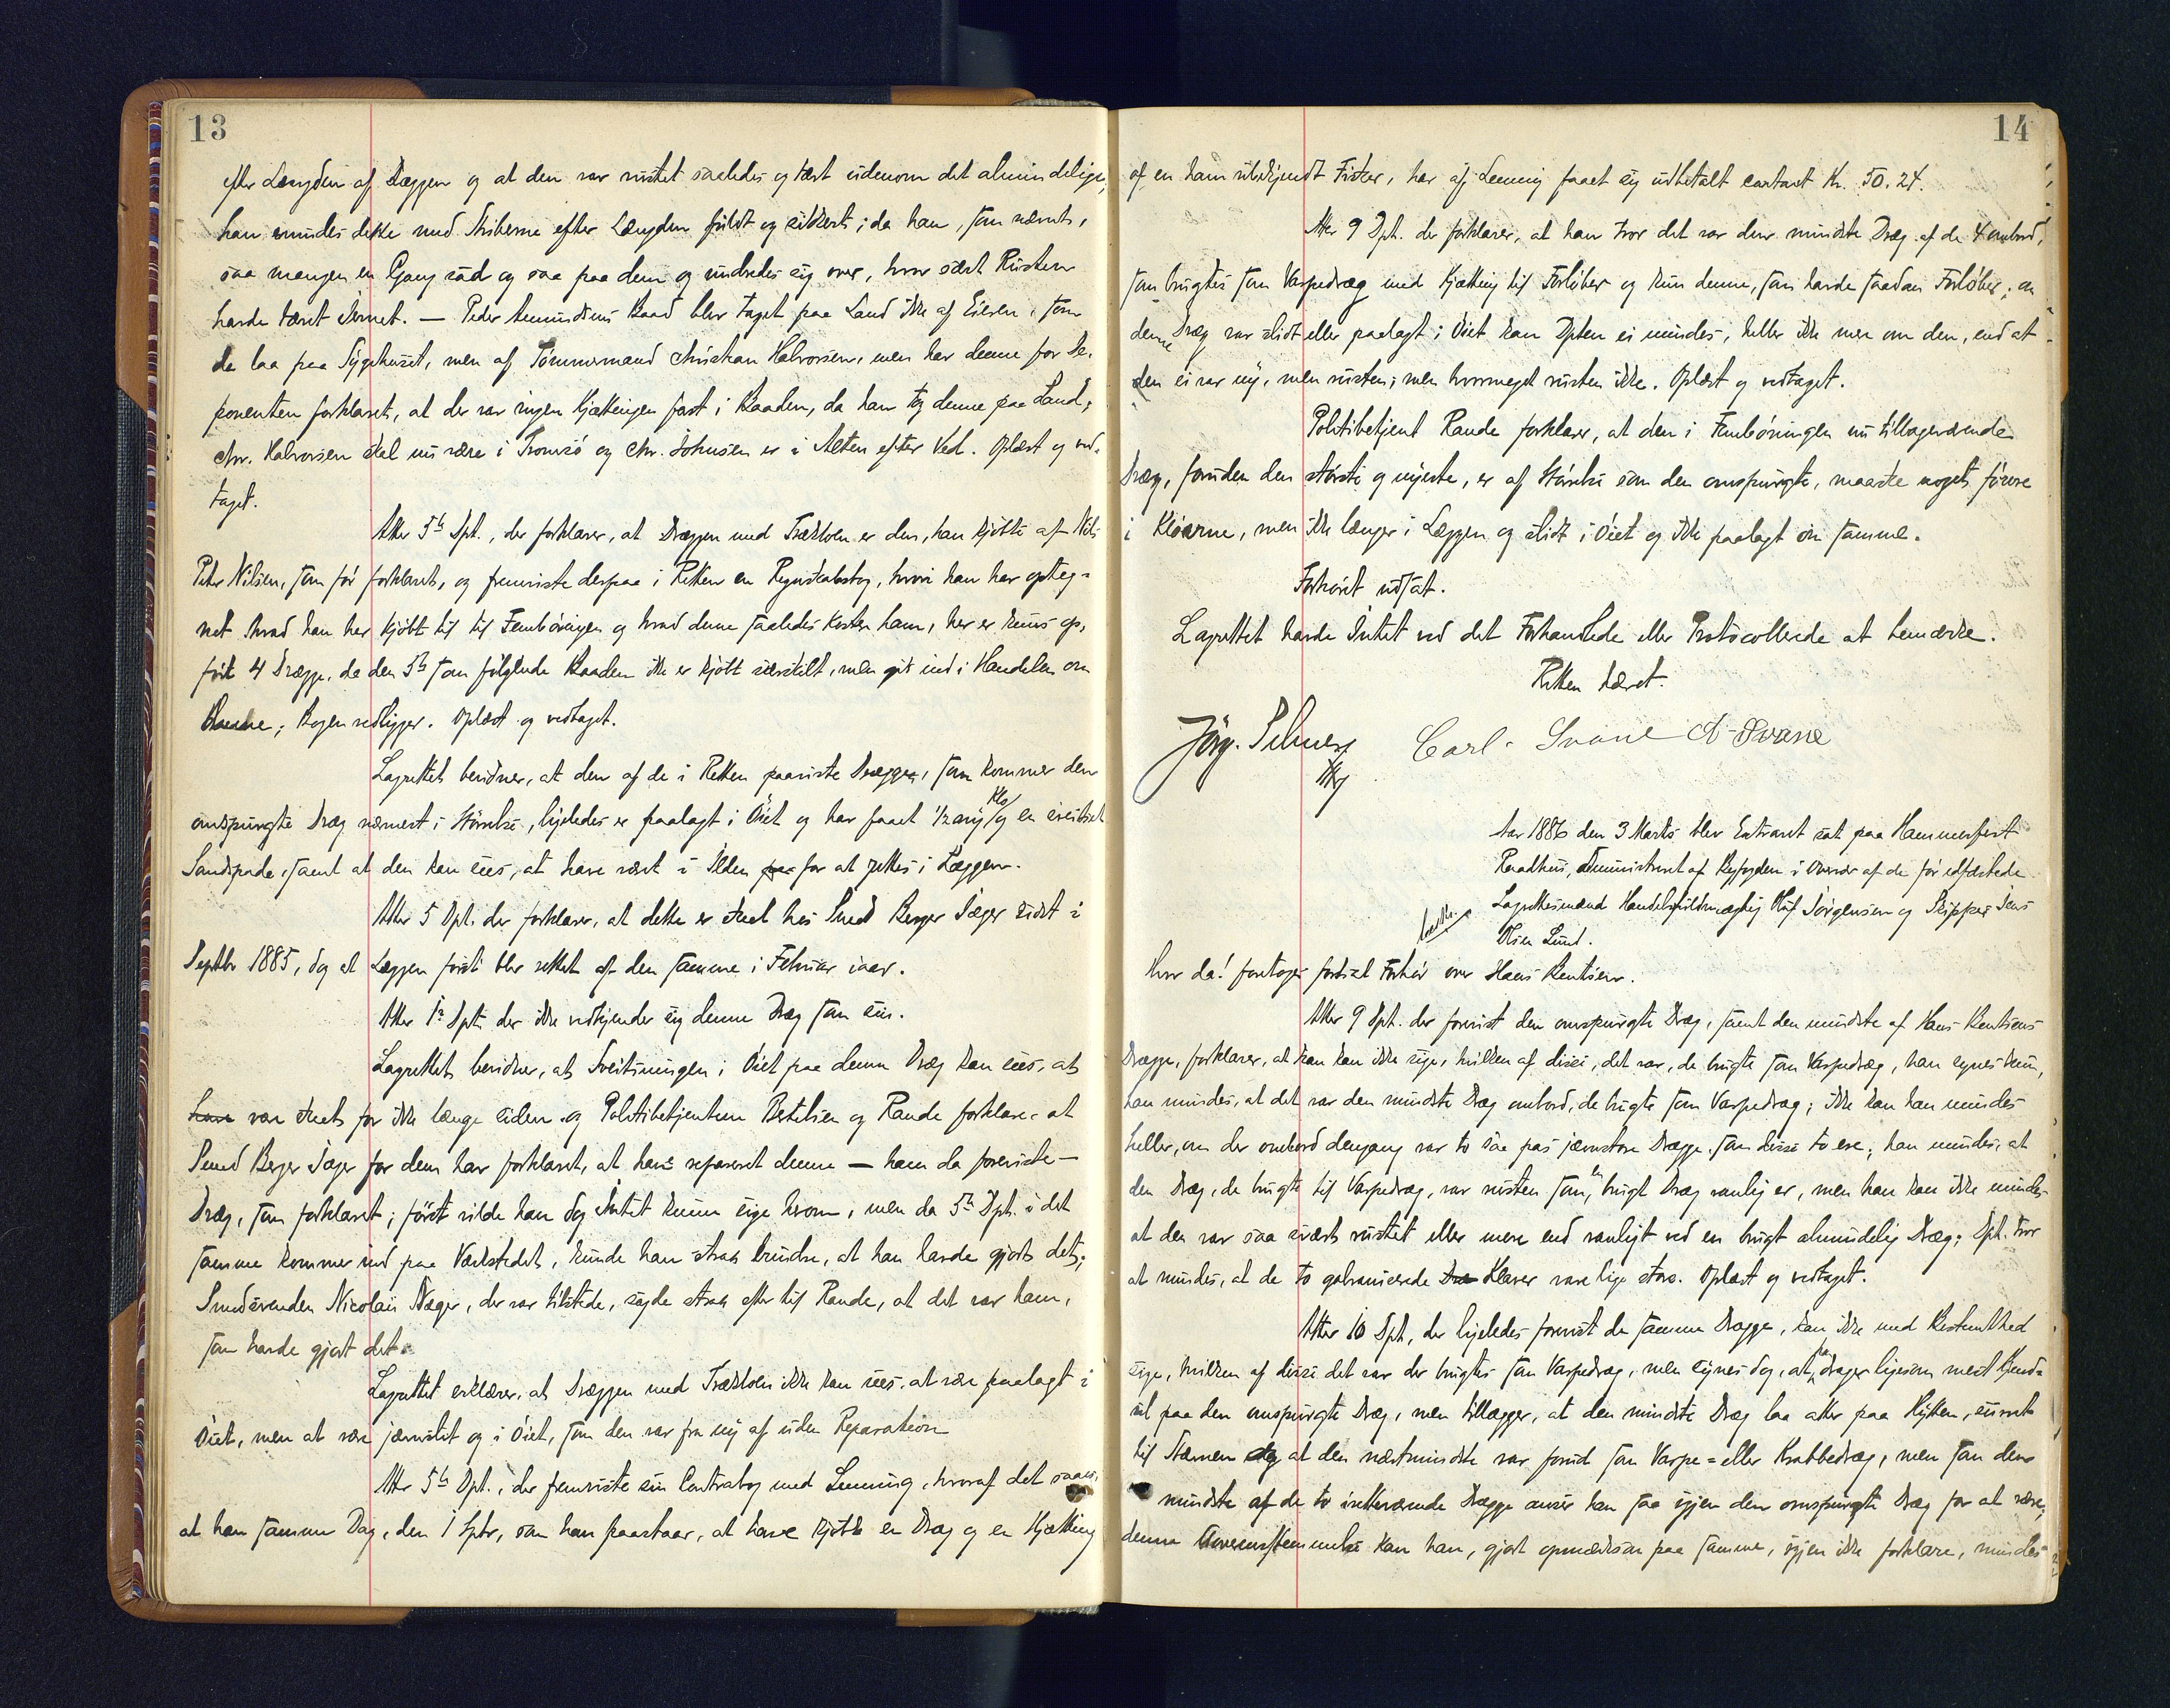 13
efter Længden af Læggen og at den var rustet saaledes og tært udenom det almindelige,
han mindes dette med Striberne efter Længden fuldt og sikkert; da han, som nævnt,
saa mangen en Gang sad og saa paa den og undredes sig over, hvor sært Rusten
havde tæret Jernet. — Peder Amundsens Baad blev taget paa Land ikke af Eieren, som
da laa paa Sygehuset, men af Tømmermand Christian Halvorsen, men har denne for De-
ponenten forklaret, at der var ingen Kjættingen fast i Baaden, da han tog denne paa Land;
Chr. Halvorsen skal nu være i Tromsø og Chr. Johnsen er i Alten efter Ved. Oplæst og ved-
taget.
Atter 5te Dpt., der forklarer, at Dræggen med Træstolen er den, han kjøbte af Nils
Peter Nilsen, som før forklaret, og fremviste derpaa i Retten en Regnskabsbog, hvori han har opteg-
net hvad han har kjøbt til til Fembøringen og hvad denne saaledes koster ham, her er kuns op-
ført 4 Drægge, da den 5te som følgende Baaden ikke er kjøbt særskilt, men gik ind i Handelen om
denne; Bogen vedligger. Oplæst og vedtaget.
Lagrettet bevidner, at den af de i Retten paaviste Drægger, som kommer den
omspurgte Dræg nærmest i Størrelse, ligeledes er paalagt i Øiet og har faaet 1/2 ny Klo og en sveitset
Landspade, samt at den kan sees, at have været i Ilden for at rettes i Læggen.
Atter 5 Dpt. der forklarer, at dette er skeet hos Smed Berger Jæger sidst i
Septbr 1885, dog at Læggen først blev rettet af den samme i Februar iaar.
Atter 1ste Dpt. der ikke vedkjender sig denne Dræg som sin.
Lagrettet bevidner, at Sveitsningen i Øiet paa denne Dræg kan sees, at
have være skeet for ikke længe siden og Politibetjentene Bertelsen og Rande forklare, at
Smed Berger Jæger for dem har forklaret, at have repareret denne — ham da foreviste —
Dræg, som forklaret; først vilde han dog Intet kunne sige herom, men da 5te Dpt. i det
samme kommer ind paa Værkstedet, kunde han strax erindre, at han havde gjort det;
Smedsvenden Nicolai Jæger, der var tilstede, sagde strax efter til Rande, at det var ham,
som havde gjort det.
Lagrettet erklærer, at Dræggen med Træstolen ikke kan sees, at være paalagt i
Øiet, men at være jævnslidt og i Øiet, som den var fra ny af uden Reparation
Atter 5te Dpt., der fremviste sin Contrabog med Lenning, hvoraf det saaes,
at han samme Dag, den 1 Sptbr, som han paastaar, at have kjøbt en Dræg og en Kjætting
14
af en ham ubekjendt Fisker, har af Lenning faaet sig udbetalt contant Kr. 50.24.
Atter 9 Dpt. der forklarer, at han tror det var den mindste Dræg af de 4 ombord,
som brugtes som Varpedræg med Kjætting til Forløber og kun denne, som havde saadan Forløber; om
denne Dræg var slidt eller paalagt i Øiet kan Dpten ei mindes, heller ikke mere om den, end at
den ei var ny, men rusten; men hvormeget rusten ikke. Oplæst og vedtaget.
Politibetjent Rande forklarer, at den i Fembøringen nu tilbageværende
Dræg, foruden den største og nyeste, er af Størrelse som den omspurgte, maaske noget finere
i Kløerne, men ikke længer i Læggen og slidt i Øiet og ikke paalagt om samme.
Forhøret udsat.
Lagrettet havde Intet ved det Forhandlede eller Protocollerede at bemærke.
Retten hævet.
Carl Svane A Svane
Aar 1886 den 3 Marts blev Extraret sat paa Hammerfest
Raadhus, administreret af Byfogden i Overvær af de før edfæstede
Lagrettesmænd Handelsfuldmægtig Oluf Jørgensen og Skipper Jens
Olsen Lund.
Hvor da! foretoges fortsat Forhør over Hans Bentsen.
Atter 9 Dpt. der forevist den omspurgte Dræg, samt den mindste af Hans Bentsens
Drægge, forklarer, at han kan ikke sige, hvilken af disse, det var, de brugte som Varpedræg, han synes kun,
han mindes, at det var den mindste Dræg ombord, de brugte som Varpedræg; ikke kan han mindes
heller, om der ombord dengang var to saa pas jævnstore Drægge som disse to ere; han mindes, at
den Dræg, de brugte til Varpedræg, var rusten som en brugt Dræg vanlig er, men han kan ikke mindes
at den var saa svært rustet eller mere end vanligt ved en brugt almindelig Dræg; Dpt. tror
at mindes, at de to galvaniserede Klarer vare lige store. Oplæst og vedtaget.
Atter 10 Dpt, der ligeledes forevist de samme Drægge, kan ikke med Bestemthed
sige, hvilken af disse det var der brugtes som Varpedræg, men synes dog, at han drager ligesom mest Kjend-
sel paa den omspurgte Dræg, men tillægger, at den mindste Dræg laa atter paa Hytten, surret
til Stævnen og at den næstmindste var forud som Varpe- eller Krabbedræg, men som den
mindste af de to iretteværende Drægge anser han saa igjen den omspurgte Dræg for at være;
denne Uoverensstemmelse kan han, gjort opmærksom paa samme, igjen ikke forklare, mindes